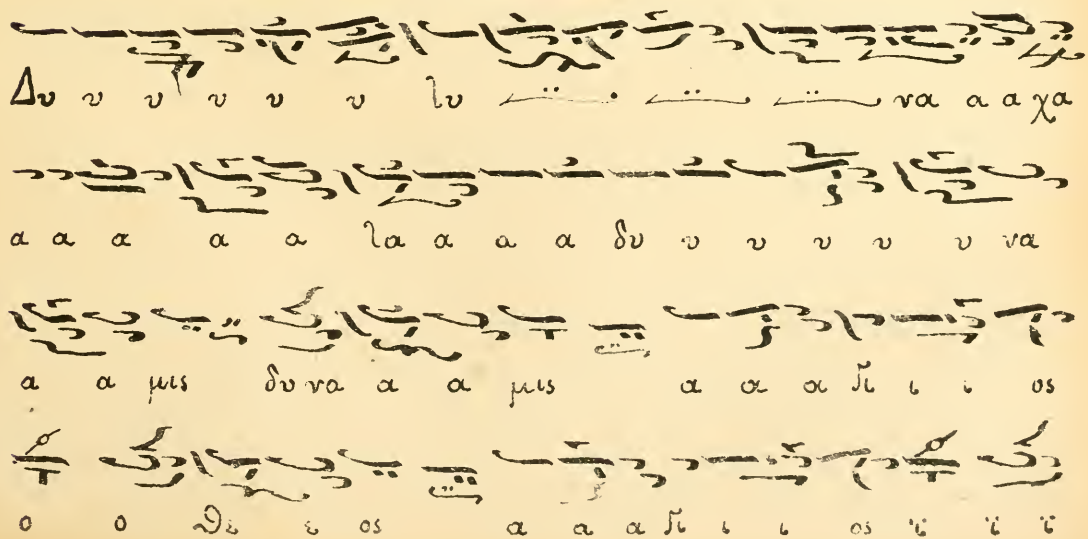 Δυ υ υ υ υ υ λυ να α α χα
α α α α α λα α α α δυ υ υ υ υ υ να
α α μις δυ να α α μις α α α γι ι ι ος
ο ο Θε ε ος α α α γι ι ι ος ϊ ϊ ϊ